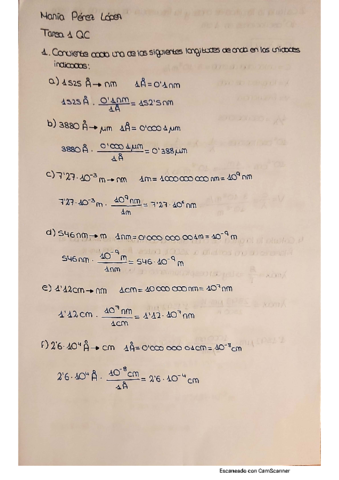 María Pérez López
Tarea 1 QC
1. Convierte cada una de las siguientes longitudes de onda en las unidades
indicadas:
a) 1525 Å → nm 1Å = 0'1 nm
1525 Å · 0'1 nm / 1Å = 152'5 nm
b) 3880 Å → μm 1Å = 0'000 1 μm
3880 Å · 0'000 1 μm / 1Å = 0'388 μm
c) 7'27·10⁻³ m → nm 1m = 1000 000 000 nm = 10⁹ nm
7'27·10⁻³ m · 10⁹ nm / 1m = 7'27·10⁶ nm
d) 546 nm → m 1nm = 0'000 000 001 m = 10⁻⁹ m
546 nm · 10⁻⁹ m / 1nm = 546·10⁻⁹ m
e) 1'12 cm → nm 1cm = 10 000 000 nm = 10⁷ nm
1'12 cm · 10⁷ nm / 1cm = 1'12·10⁷ nm
f) 2'6·10⁴ Å → cm 1Å = 0'000 000 01 cm = 10⁻⁸ cm
2'6·10⁴ Å · 10⁻⁸ cm / 1Å = 2'6·10⁻⁴ cm
Escaneado con CamScanner